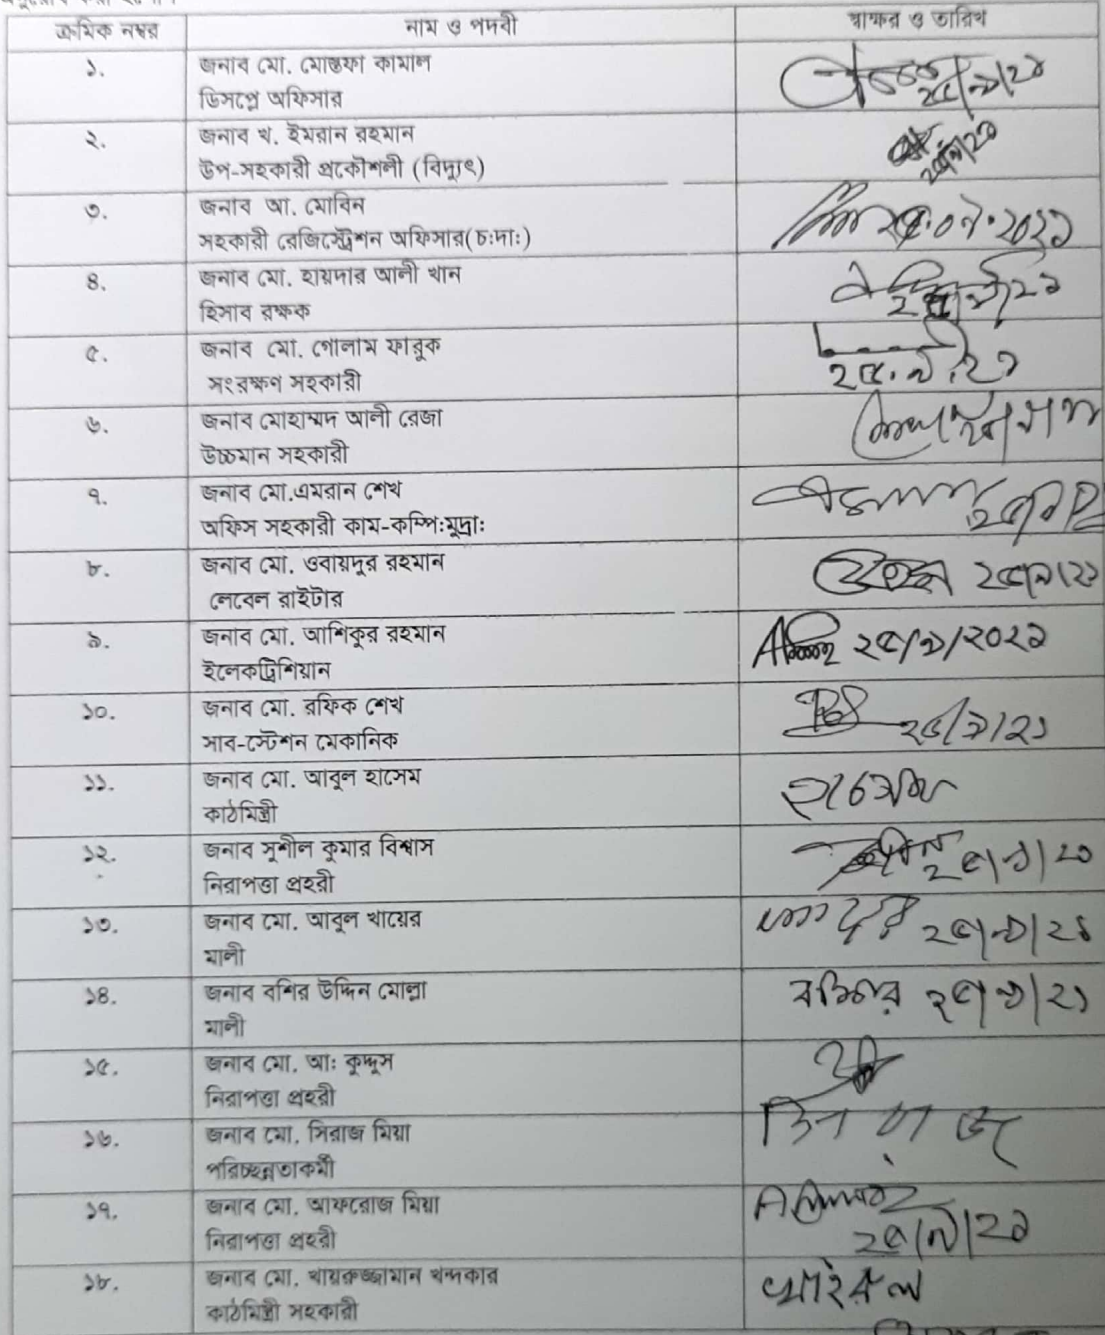 ক্রমিক নম্বর নাম ও পদবী স্বাক্ষর ও তারিখ
১. জনাব মো. মোস্তফা কামাল
ডিসপ্লে অফিসার
২৫/৯/২১
২. জনাব খ. ইমরান রহমান
উপ-সহকারী প্রকৌশলী (বিদ্যুৎ)
৩. জনাব আ. মোবিন
সহকারী রেজিস্ট্রেশন অফিসার(চ:দা:)
২৫.০৯.২০২১
৪. জনাব মো. হায়দার আলী খান
হিসাব রক্ষক
২৫/৯/২১
৫. জনাব মো. গোলাম ফারুক
সংরক্ষণ সহকারী
২৫.৯.২১
৬. জনাব মোহাম্মদ আলী রেজা
উচ্চমান সহকারী
৭. জনাব মো.এমরান শেখ
অফিস সহকারী কাম-কম্পি:মুদ্রা:
৮. জনাব মো. ওবায়দুর রহমান ২৫/৯/২১
লেবেল রাইটার
৯. জনাব মো. আশিকুর রহমান ২৫/৯/২০২১
ইলেকট্রিশিয়ান
১০. জনাব মো. রফিক শেখ
সাব-স্টেশন মেকানিক ২৫/৯/২১
১১. জনাব মো. আবুল হাসেম
কাঠমিস্ত্রী
১২. জনাব সুশীল কুমার বিশ্বাস ২৫/৯/২১
নিরাপত্তা প্রহরী
১৩. জনাব মো. আবুল খায়ের ২৫/৯/২১
মালী
১৪. জনাব বশির উদ্দিন মোল্লা বশির ২৫/৯/২১
মালী
১৫. জনাব মো. আ: কুদ্দুস
নিরাপত্তা প্রহরী
১৬. জনাব মো. সিরাজ মিয়া
পরিচ্ছন্নতাকর্মী
১৭. জনাব মো. আফরোজ মিয়া
নিরাপত্তা প্রহরী ২৫/৯/২১
১৮. জনাব মো. খায়রুজ্জামান খন্দকার খাইরুল
কাঠমিস্ত্রী সহকারী